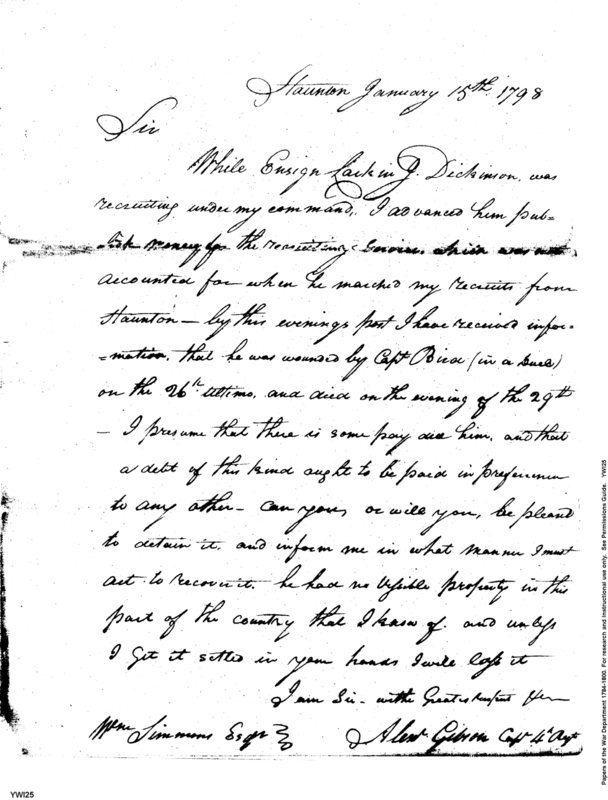 Staunton January 15th. 1798
Sir
While Ensign Larkin G. Dickinson, was
recruiting under my command, I advanced him pub-
-lick money for the recruiting Service, which was not
accounted for when he marched my recruits from
Staunton — by this evenings post I have received infor-
-mation, that he was wounded by Capt. Bird (in a Duel)
on the 26th. Ultimo, and died on the evening of the 29th
— I presume that there is some pay due him, and that
a debt of this kind aught to be paid in preference
to any other — can you, or will you, be pleased
to detain it, and inform me in what manner I must
act to recover it. he had no Visible property in this
part of the country that I know of and unless
I Get it settled in your hands I will lose it
I am Sir — with Great respect
Wm Simmons Esqr
Alexr Gibson Capt 4th Regt
YWI25
Papers of the War Department 1784-1800. For research and instructional use only. See Permissions Guide. YWI25